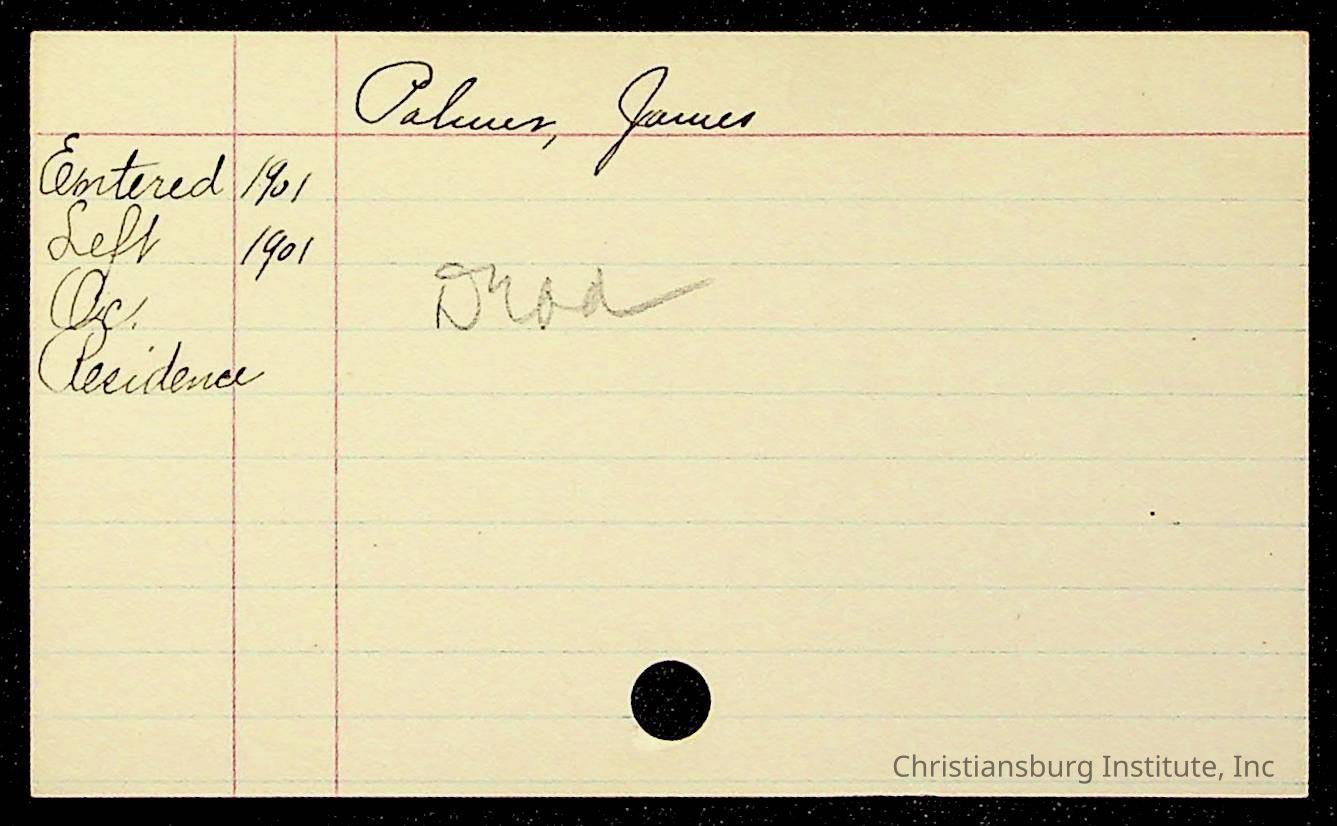 Palmer, James
Entered 1901
Left 1901
Oc.
Residence
Christiansburg Institute, Inc